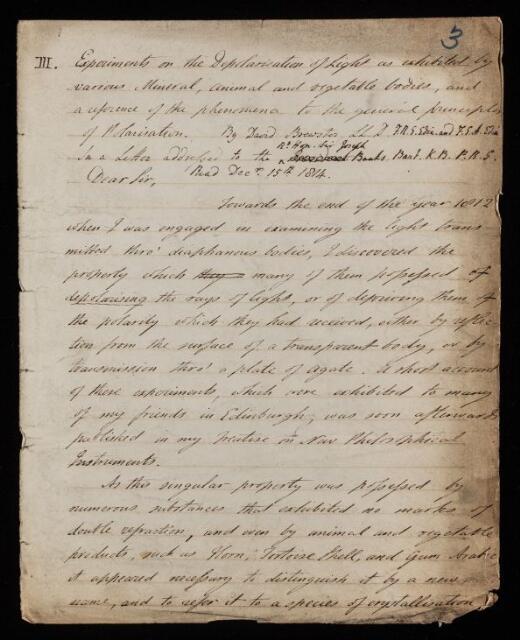 3
III. Experiments on the Depolarisation of Light as exhibited by
various Mineral, animal and vegetable bodies, and
a reference of the phenomena to the general principles
of Polarisation. By David Brewster, LL. D. F.R.S. Edin and F.S.A. Edin
Rt. Hon. Sir Joseph
in a Letter addressed to the Banks. Bart. K.B. P.R.S.
Dear Sir, Read Decr. 15th 1814.
Towards the end of the year 1812
when I was engaged in examining the light trans
mitted thro' diaphanous bodies, I discovered the
property which they many of them possessed of
depolarising the rays of light, or of depriving them of
the polarity which they had received, either by reflec
tion from the surface of a transparent body, or by
transmission thro' a plate of agate. A short account
of these experiments, which were exhibited to many
of my friends in Edinburgh, was soon afterwards
published in my treatise on New Philosophical
Instruments.
As this singular property was possessed by
numerous substances that exhibited no marks of
double refraction, and even by animal and vegetable
products, such as Horn, Tortoise Shell, and Gum Arabic
it appeared necessary to distinguish it by a new
name, and to refer it to a species of crystallisation